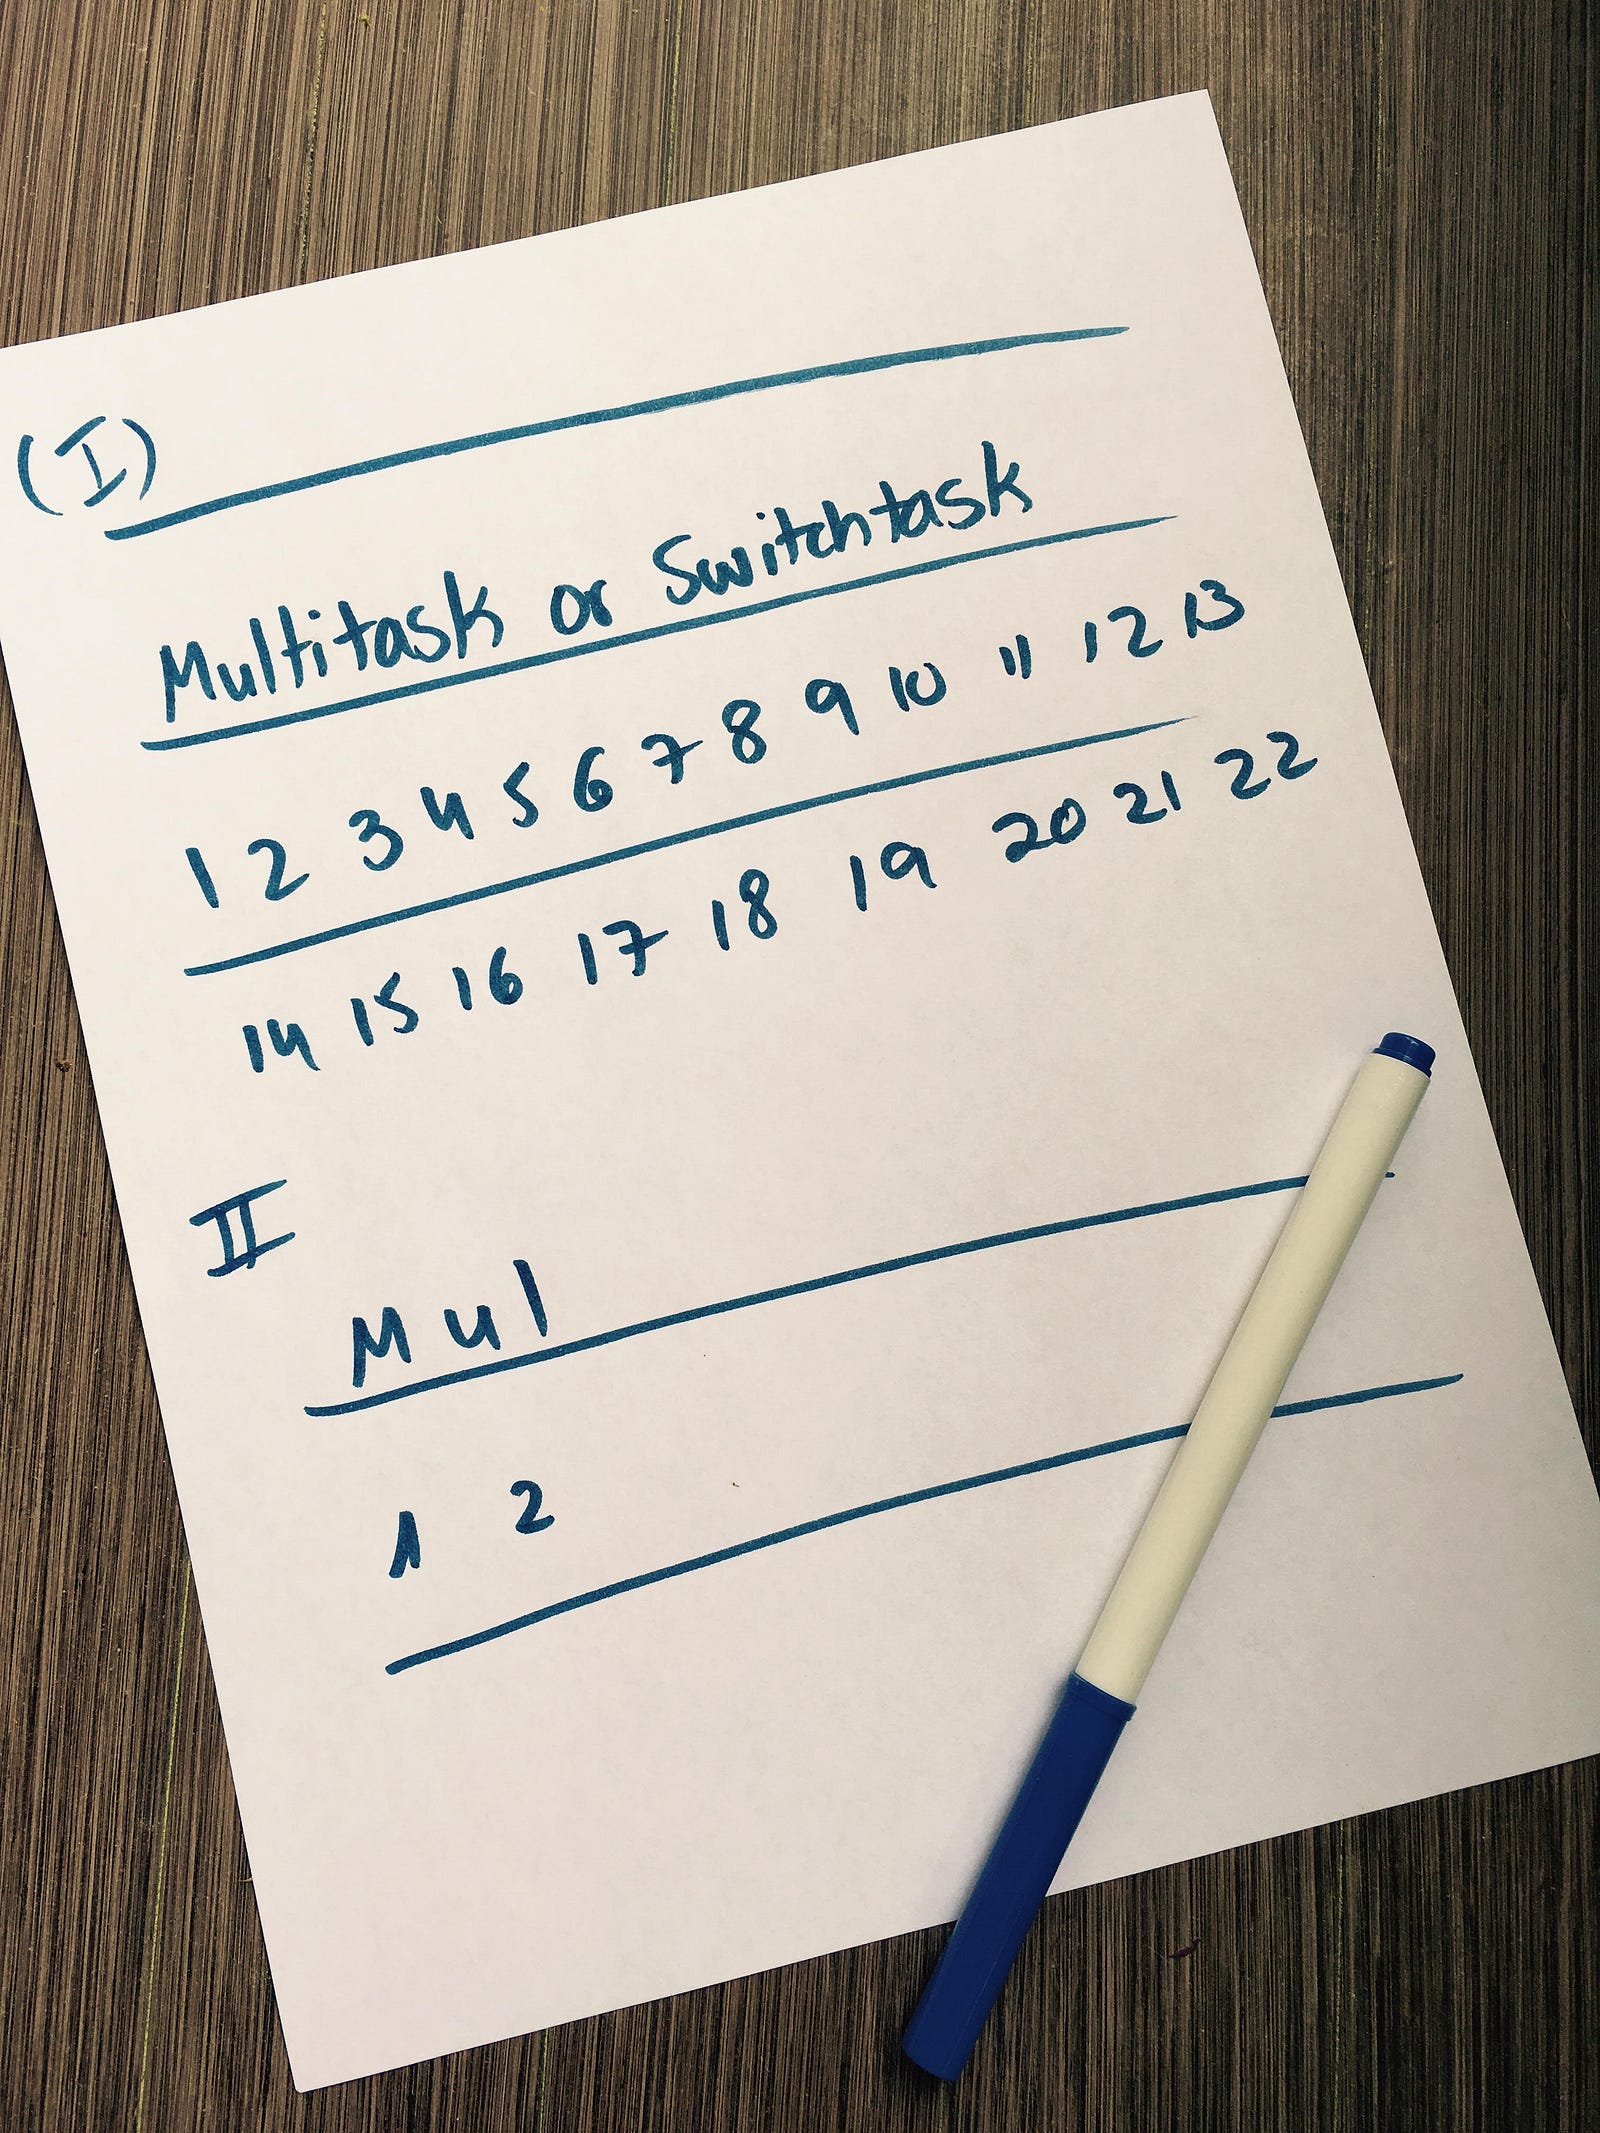 (I)
Multitask or Switchtask
1 2 3 4 5 6 7 8 9 10 11 12 13
14 15 16 17 18 19 20 21 22
II
M u l
1 2